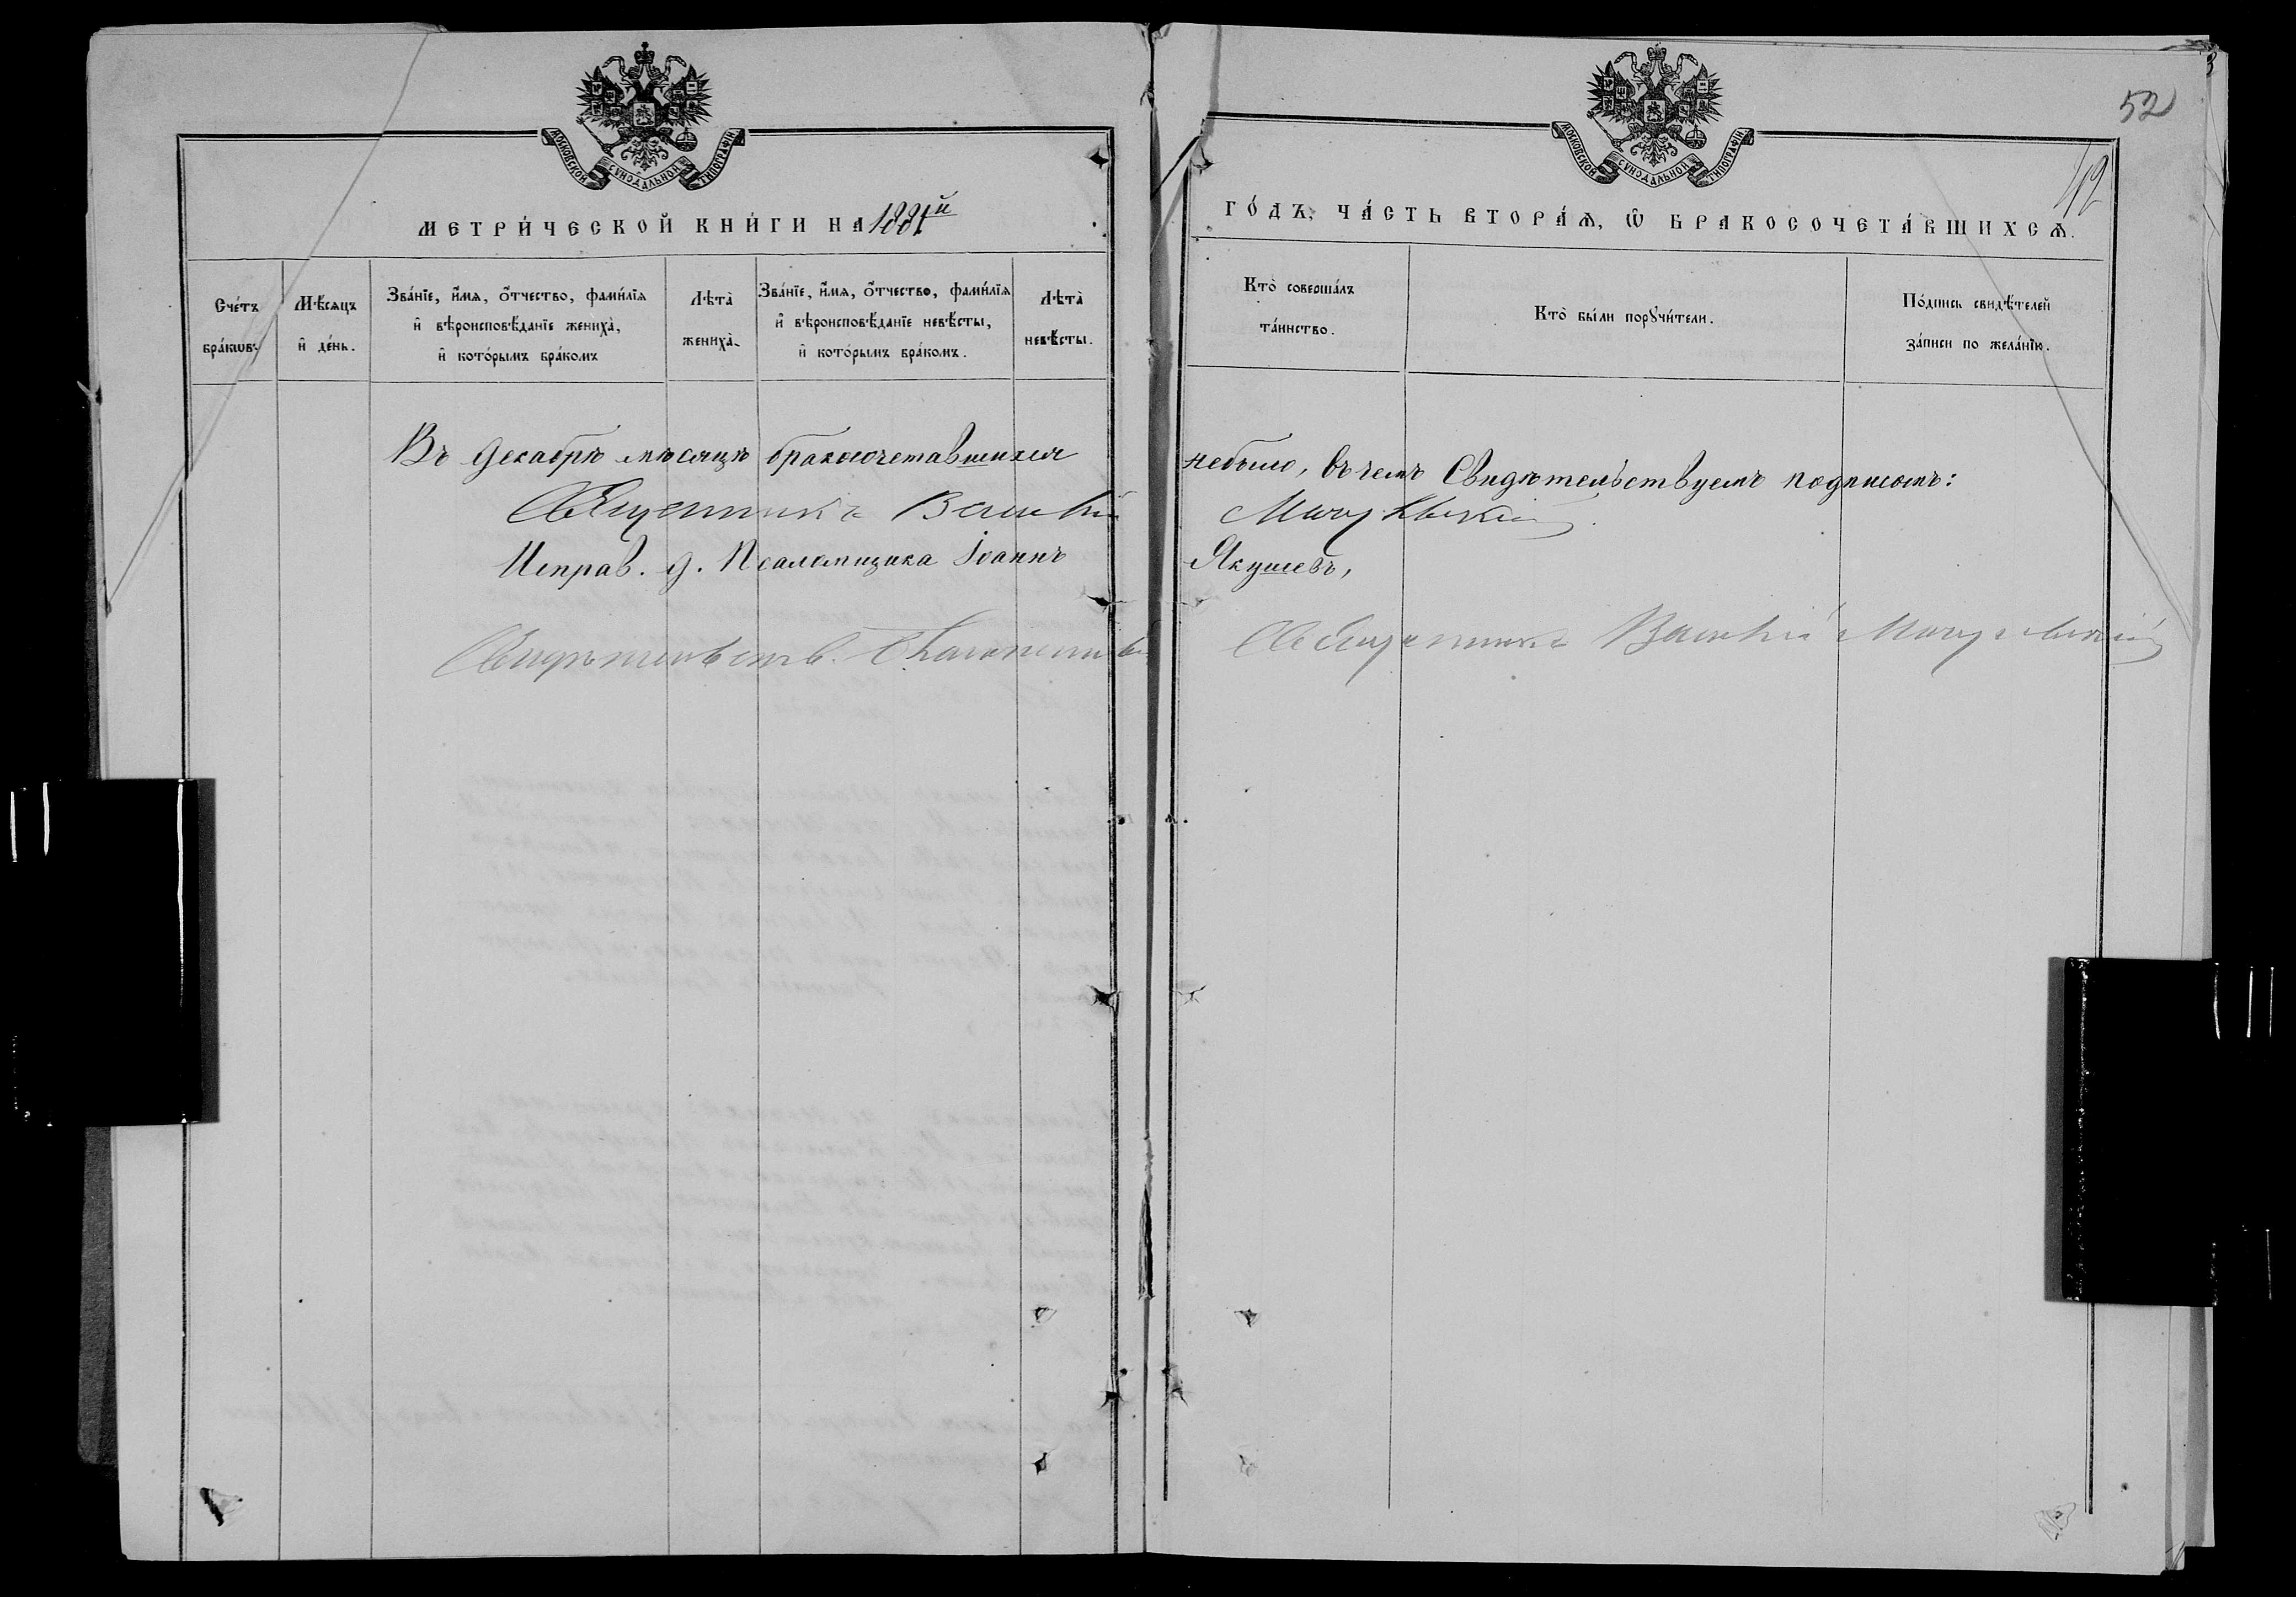 52
42
МОСКОВСКОЙ СѴНОДАЛЬНОЙ ТИПОГРАФІИ.
МОСКОВСКОЙ СѴНОДАЛЬНОЙ ТИПОГРАФІИ.
МЕТРИ́ЧЕСКОЙ КНИ́ГИ НА 1881й
ГО́ДЪ, ЧА́СТЬ ВТОРА́Ѧ, Ѿ БРАКОСОЧЕТА́ВШИХСѦ.
Сче́тъ
бра́кѡвъ.
Мѣ́сяцъ
и҆ де́нь.
Зва́нїе, и҆́мя, о҆́тчество, фами́лїя
и҆ вѣроисповѣ́данїе жениха̀,
и҆ кото́рымъ бра́комъ
Лѣта̀
жениха̀.
Зва́нїе, и҆́мя, о҆́тчество, фами́лїя
и҆ вѣроисповѣ́данїе невѣ́сты,
и҆ кото́рымъ бра́комъ.
Лѣта̀
невѣ́сты.
Кто̀ соверша́лъ
та́инство.
Кто̀ бы́ли порꙋчи́тели.
По́дпись свидѣ́телей
за́писи по жела́нїю.
Въ Декабрѣ мѣсяцѣ бракосочетавшихся небыло, въ чемъ Свидѣтельствуемъ подписомъ:
Священникъ Василій
Исправ. д. Псаломщика Іоаннъ Якушевъ,
Священникъ Василій